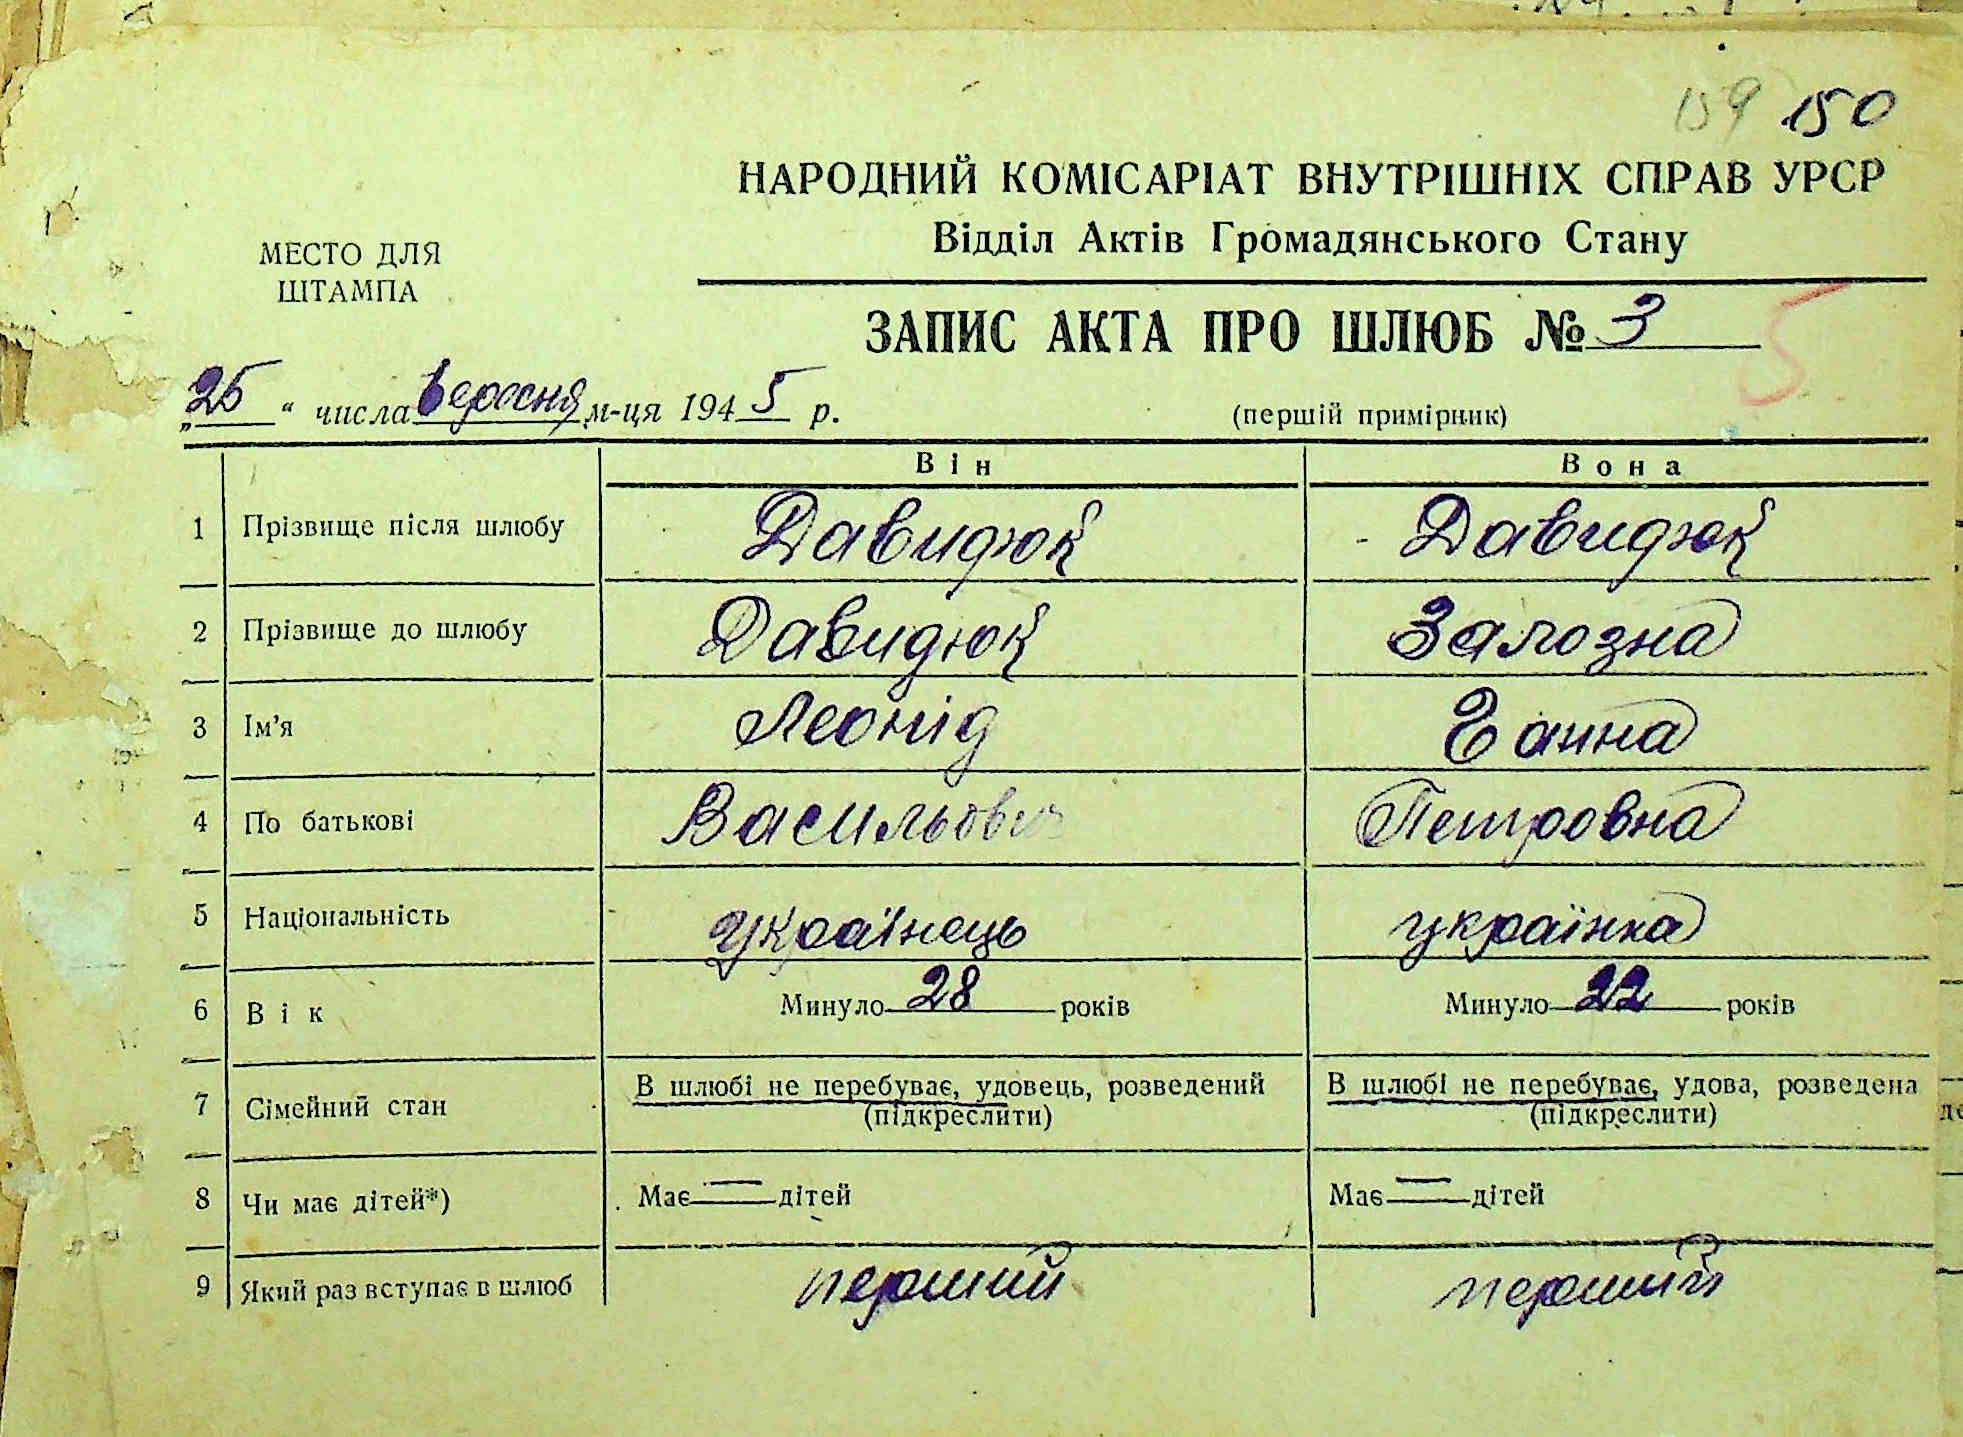 159 150
НАРОДНИЙ КОМІСАРІАТ ВНУТРІШНІХ СПРАВ УРСР
Відділ Актів Громадянського Стану
МЕСТО ДЛЯ
ШТАМПА
ЗАПИС АКТА ПРО ШЛЮБ № 3 5
„25“ числа вересня м-ця 1945 р. (першій примірник)
Він Вона
1 Прізвище після шлюбу Давидюк Давидюк
2 Прізвище до шлюбу Давидюк Залозна
3 Ім’я Леонід Ганна
4 По батькові Васильович Петровна
5 Національність українець українка
6 Вік Минуло 28 років Минуло 22 років
7 Сімейний стан В шлюбі не перебуває, удовець, розведений В шлюбі не перебуває, удова, розведена
(підкреслити) (підкреслити)
8 Чи має дітей*) Має — дітей Має — дітей
9 Який раз вступає в шлюб перший перший